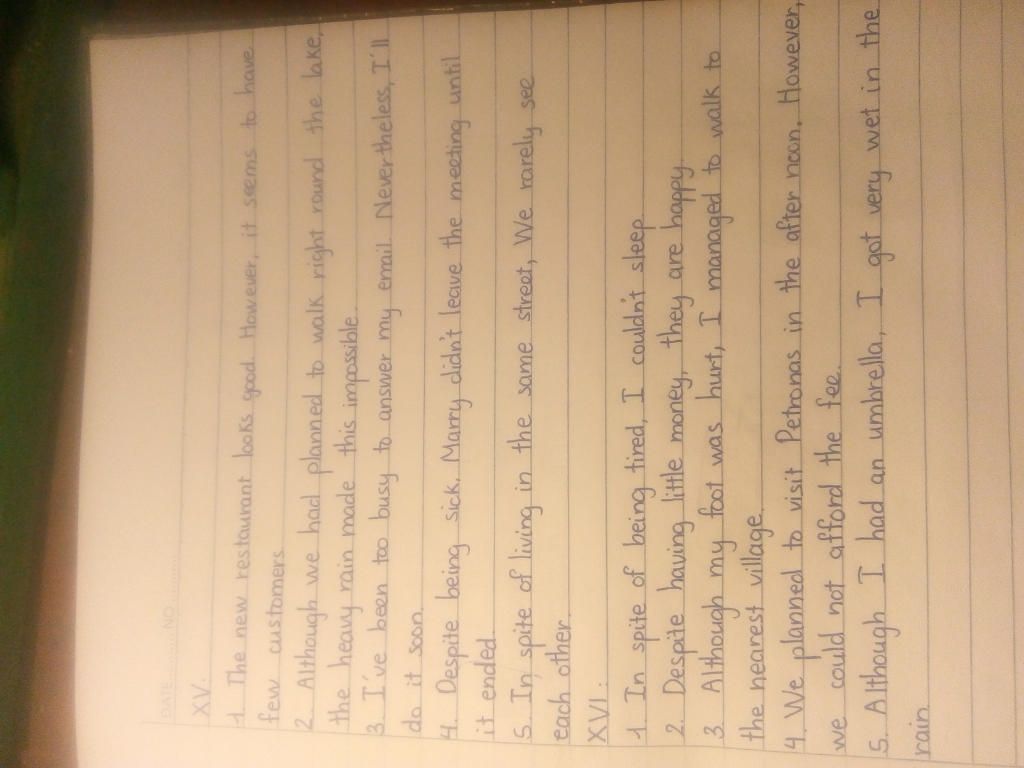 DATE ............ NO ............
XV.
1. The new restaurant looks good. However, it seems to have
few customers
2. Although we had planned to walk right round the lake,
the heavy rain made this impossible.
3. I've been too busy to answer my email. Nevertheless, I'll
do it soon.
4. Despite being sick, Marry didn't leave the meeting until
it ended.
5. In spite of living in the same street, We rarely see
each other.
XVI.
1. In spite of being tired, I couldn't sleep
2. Despite having little money, they are happy.
3. Although my foot was hurt, I managed to walk to
the nearest village.
4. We planned to visit Petronas in the after noon. However,
we could not afford the fee.
5. Although I had an umbrella, I got very wet in the
rain.